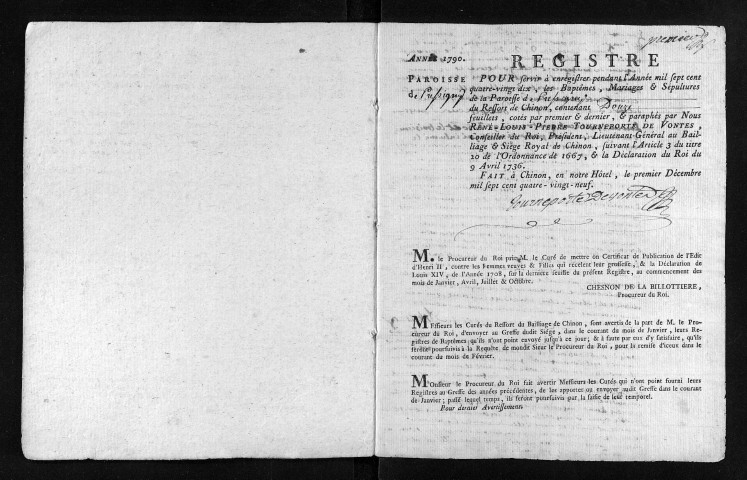 ANNÉE 1790.
REGISTRE
PAROISSE
de Pussigny
POUR servir à enregistrer pendant l'Année mil sept cent
quatre-vingt dix, les Baptêmes, Mariages & Sépultures
de la Paroisse de Pussigny
du Ressort de Chinon, contenant Douze
feuillets, cotés par premier & dernier, & paraphés par Nous
RENÉ-LOUIS-PIERRE TOURNEPORTE DE VONTES,
Conseiller du Roi, Président, Lieutenant-Général au Bail-
liage & Siège Royal de Chinon, suivant l'Article 3 du titre
20 de l'Ordonnance de 1667, & la Déclaration du Roi du
9 Avril 1736.
FAIT à Chinon, en notre Hôtel, le premier Décembre
mil sept cent quatre-vingt-neuf.
Tourneporte Devontes
M. le Procureur du Roi prie M. le Curé de mettre un Certificat de Publication de l'Edit
d'Henri II, contre les Femmes veuves & Filles qui recelent leur grossesse, & la Déclaration de
Louis XIV, de l'Année 1708, sur la derniere feuille du présent Registre, au commencement des
mois de Janvier, Avril, Juillet & Octobre.
CHESNON DE LA BILLOTTIERE,
Procureur du Roi.
Messieurs les Curés du Ressort du Bailliage de Chinon, sont avertis de la part de M. le Pro-
cureur du Roi, d'envoyer au Greffe dudit Siége, dans le courant du mois de Janvier, leurs Re-
gistres de Baptêmes qu'ils n'ont point envoyé jusqu'à ce jour; & à faute par eux d'y satisfaire, qu'ils
seront poursuivis à la Requête de mondit Sieur le Procureur du Roi, pour la remise d'iceux dans le
courant du mois de Février.
Monsieur le Procureur du Roi fait avertir Messieurs les Curés qui n'ont point fourni leurs
Registres au Greffe des années précédentes, de les apporter ou envoyer audit Greffe dans le courant
de Janvier; passé lequel temps, ils seront poursuivis par la saisie de leur temporel.
Pour dernier Avertissement.